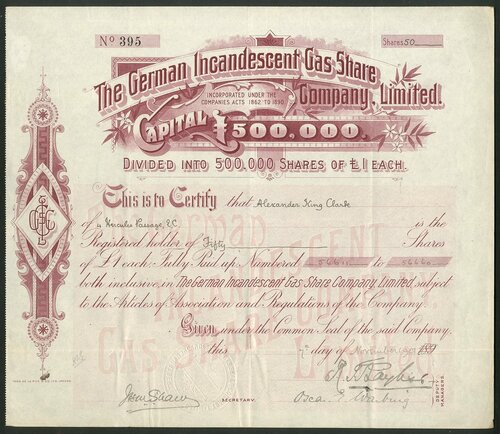 No 395
Shares 50
The German Incandescent Gas Share
Company, Limited.
INCORPORATED UNDER THE
COMPANIES ACTS 1862 TO 1890.
CAPITAL £500,000.
DIVIDED INTO 500,000 SHARES OF £1 EACH.
This is to Certify that Alexander King Clark
of Hercules Passage, E.C. is the
Registered holder of Fifty Shares
of £1 each. Fully Paid up. Numbered 56611 to 56660
both inclusive, in The German Incandescent Gas Share Company, Limited, subject
to the Articles of Association and Regulations of the Company.
Given under the Common Seal of the said Company.
this day of November 189
SECRETARY.
DEPUTY
MANAGERS.